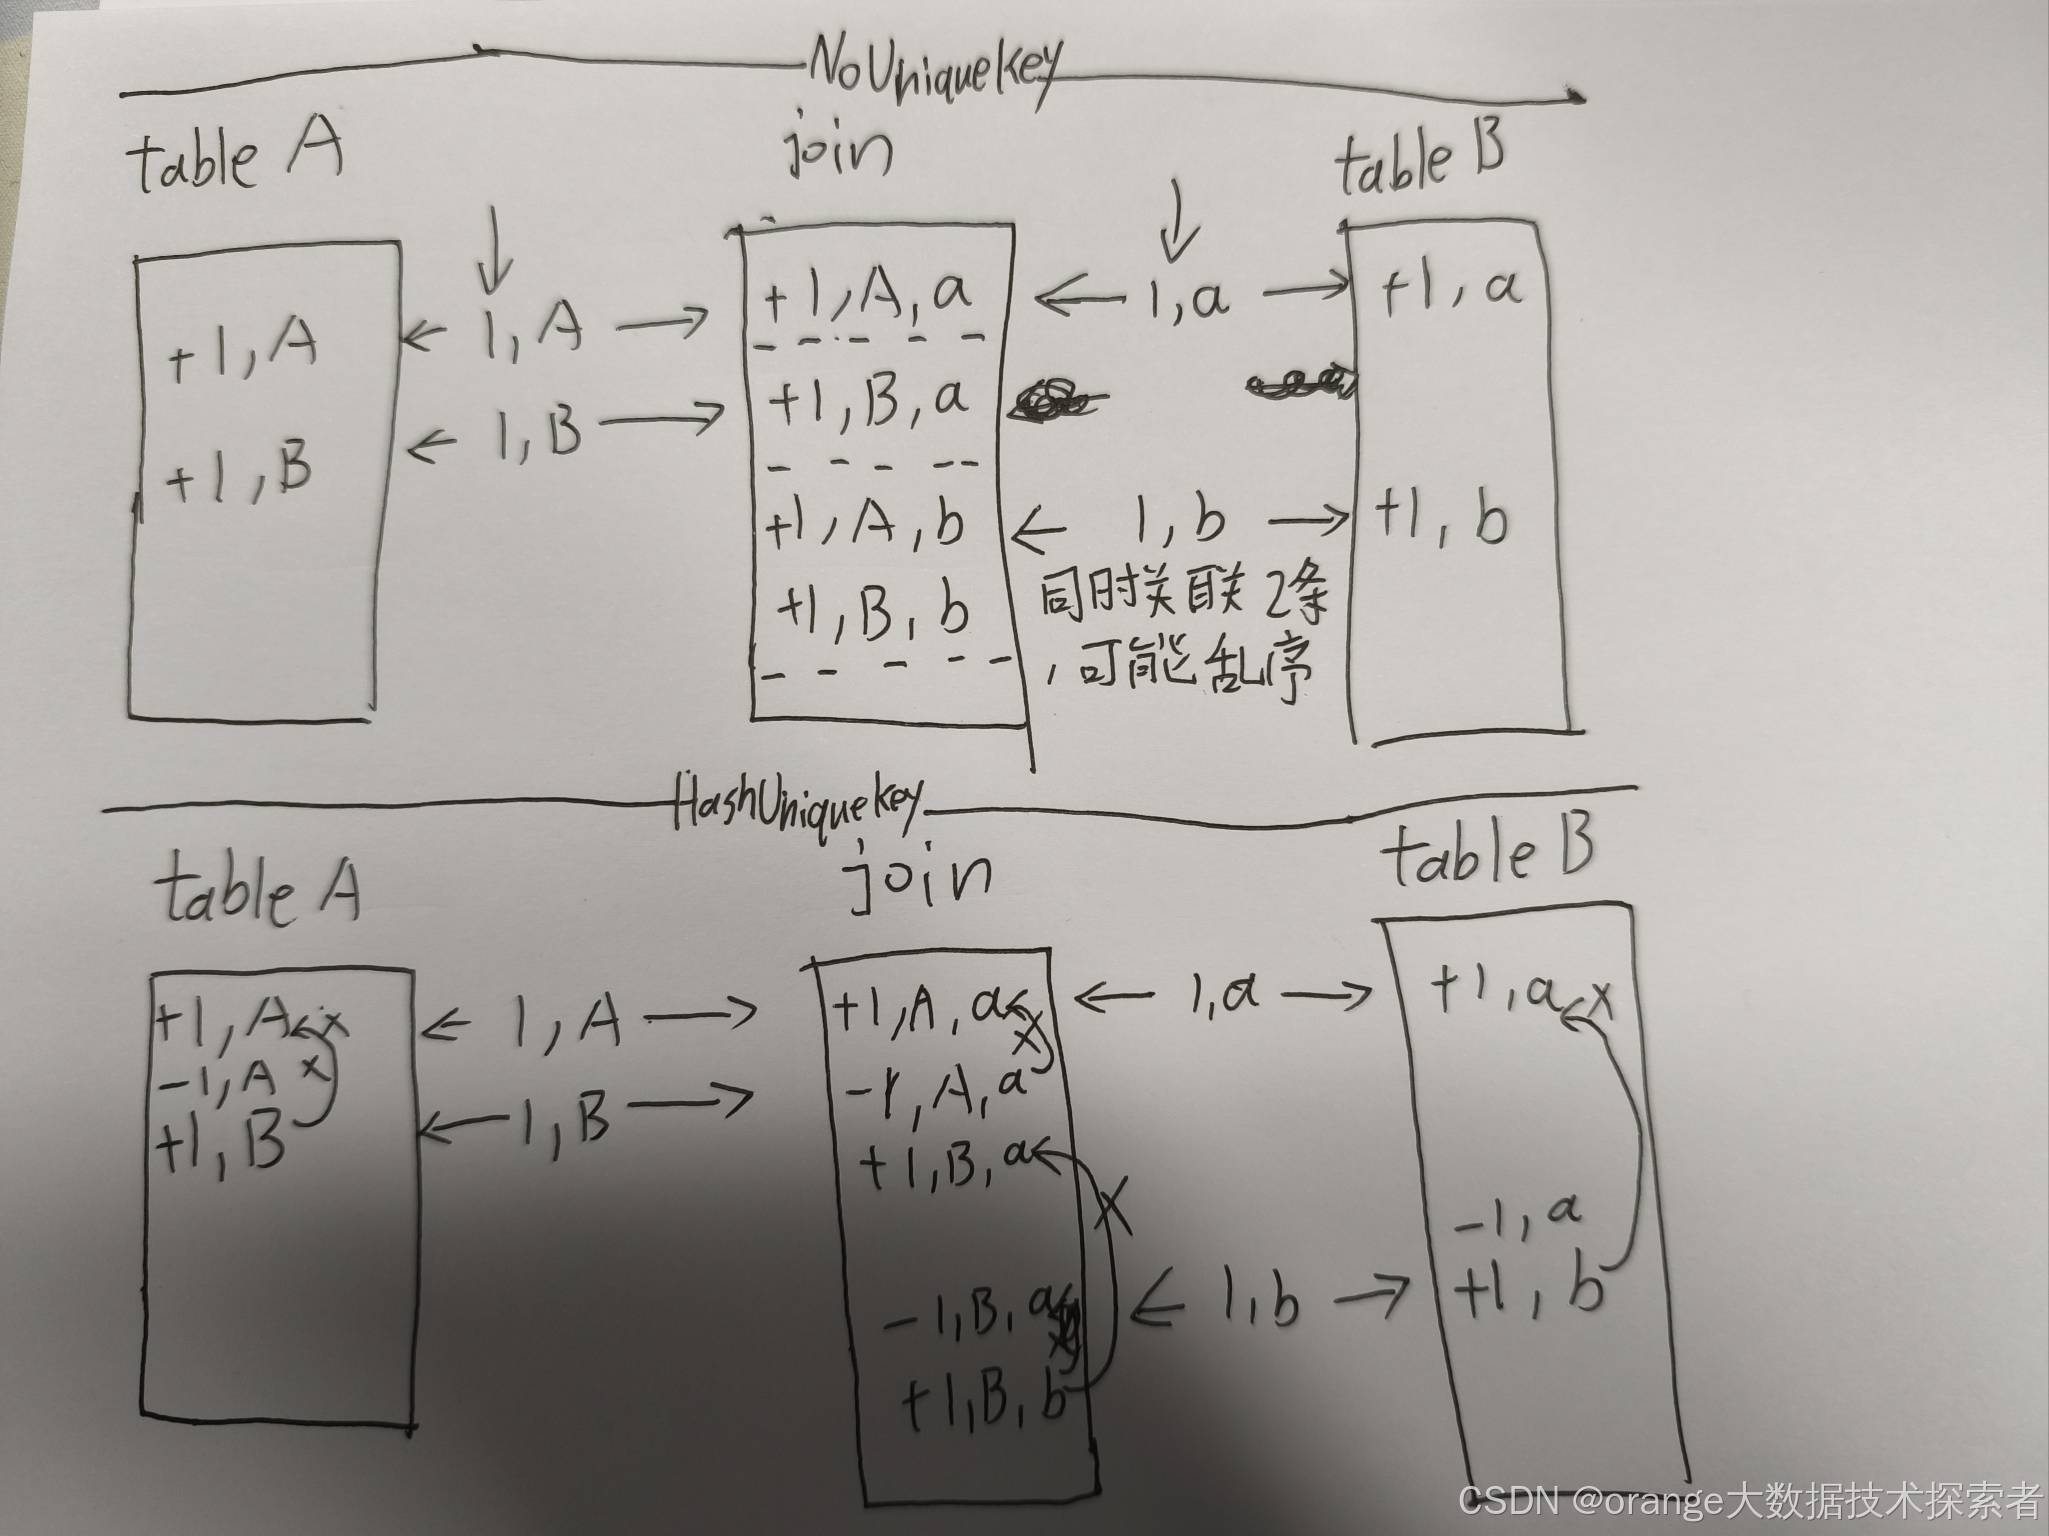 NoUniquekey
table A
join
table B
+1, A
← 1, A →
+1, A, a
← 1, a →
+1, a
+1, B
← 1, B →
+1, B, a
+1, A, b
← 1, b →
+1, b
+1, B, b
同时关联2条
,可能乱序
HashUniquekey
table A
join
table B
+1, A
← 1, A →
+1, A, a
← 1, a →
+1, a
x
x
x
-1, A
x
-1, A, a
+1, B
← 1, B →
+1, B, a
x
-1, a
-1, B, a
← 1, b →
+1, b
+1, B, b
CSDN @orange大数据技术探索者